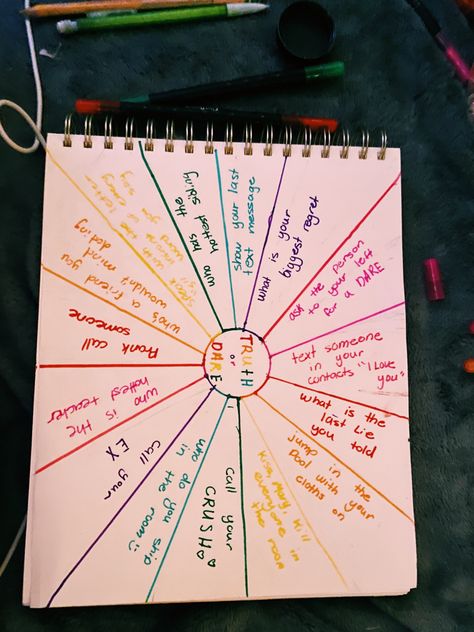 TRUTH
or
DARE
show your last
text message
what is your
biggest regret
ask the person
to your left
for a DARE
text someone
in your
contacts "I love
you"
what is the
last Lie
you told
jump in the
Pool with your
cloths on
Kiss, Mary, Kill in
everyone in
the room
call your
CRUSH
who do you ship
in the room
call your
EX
who is the
hottest teacher
Prank call
someone
who's a friend you
wouldn't mind dating
with the letter
every
word you
say
who has the
hottest sibling